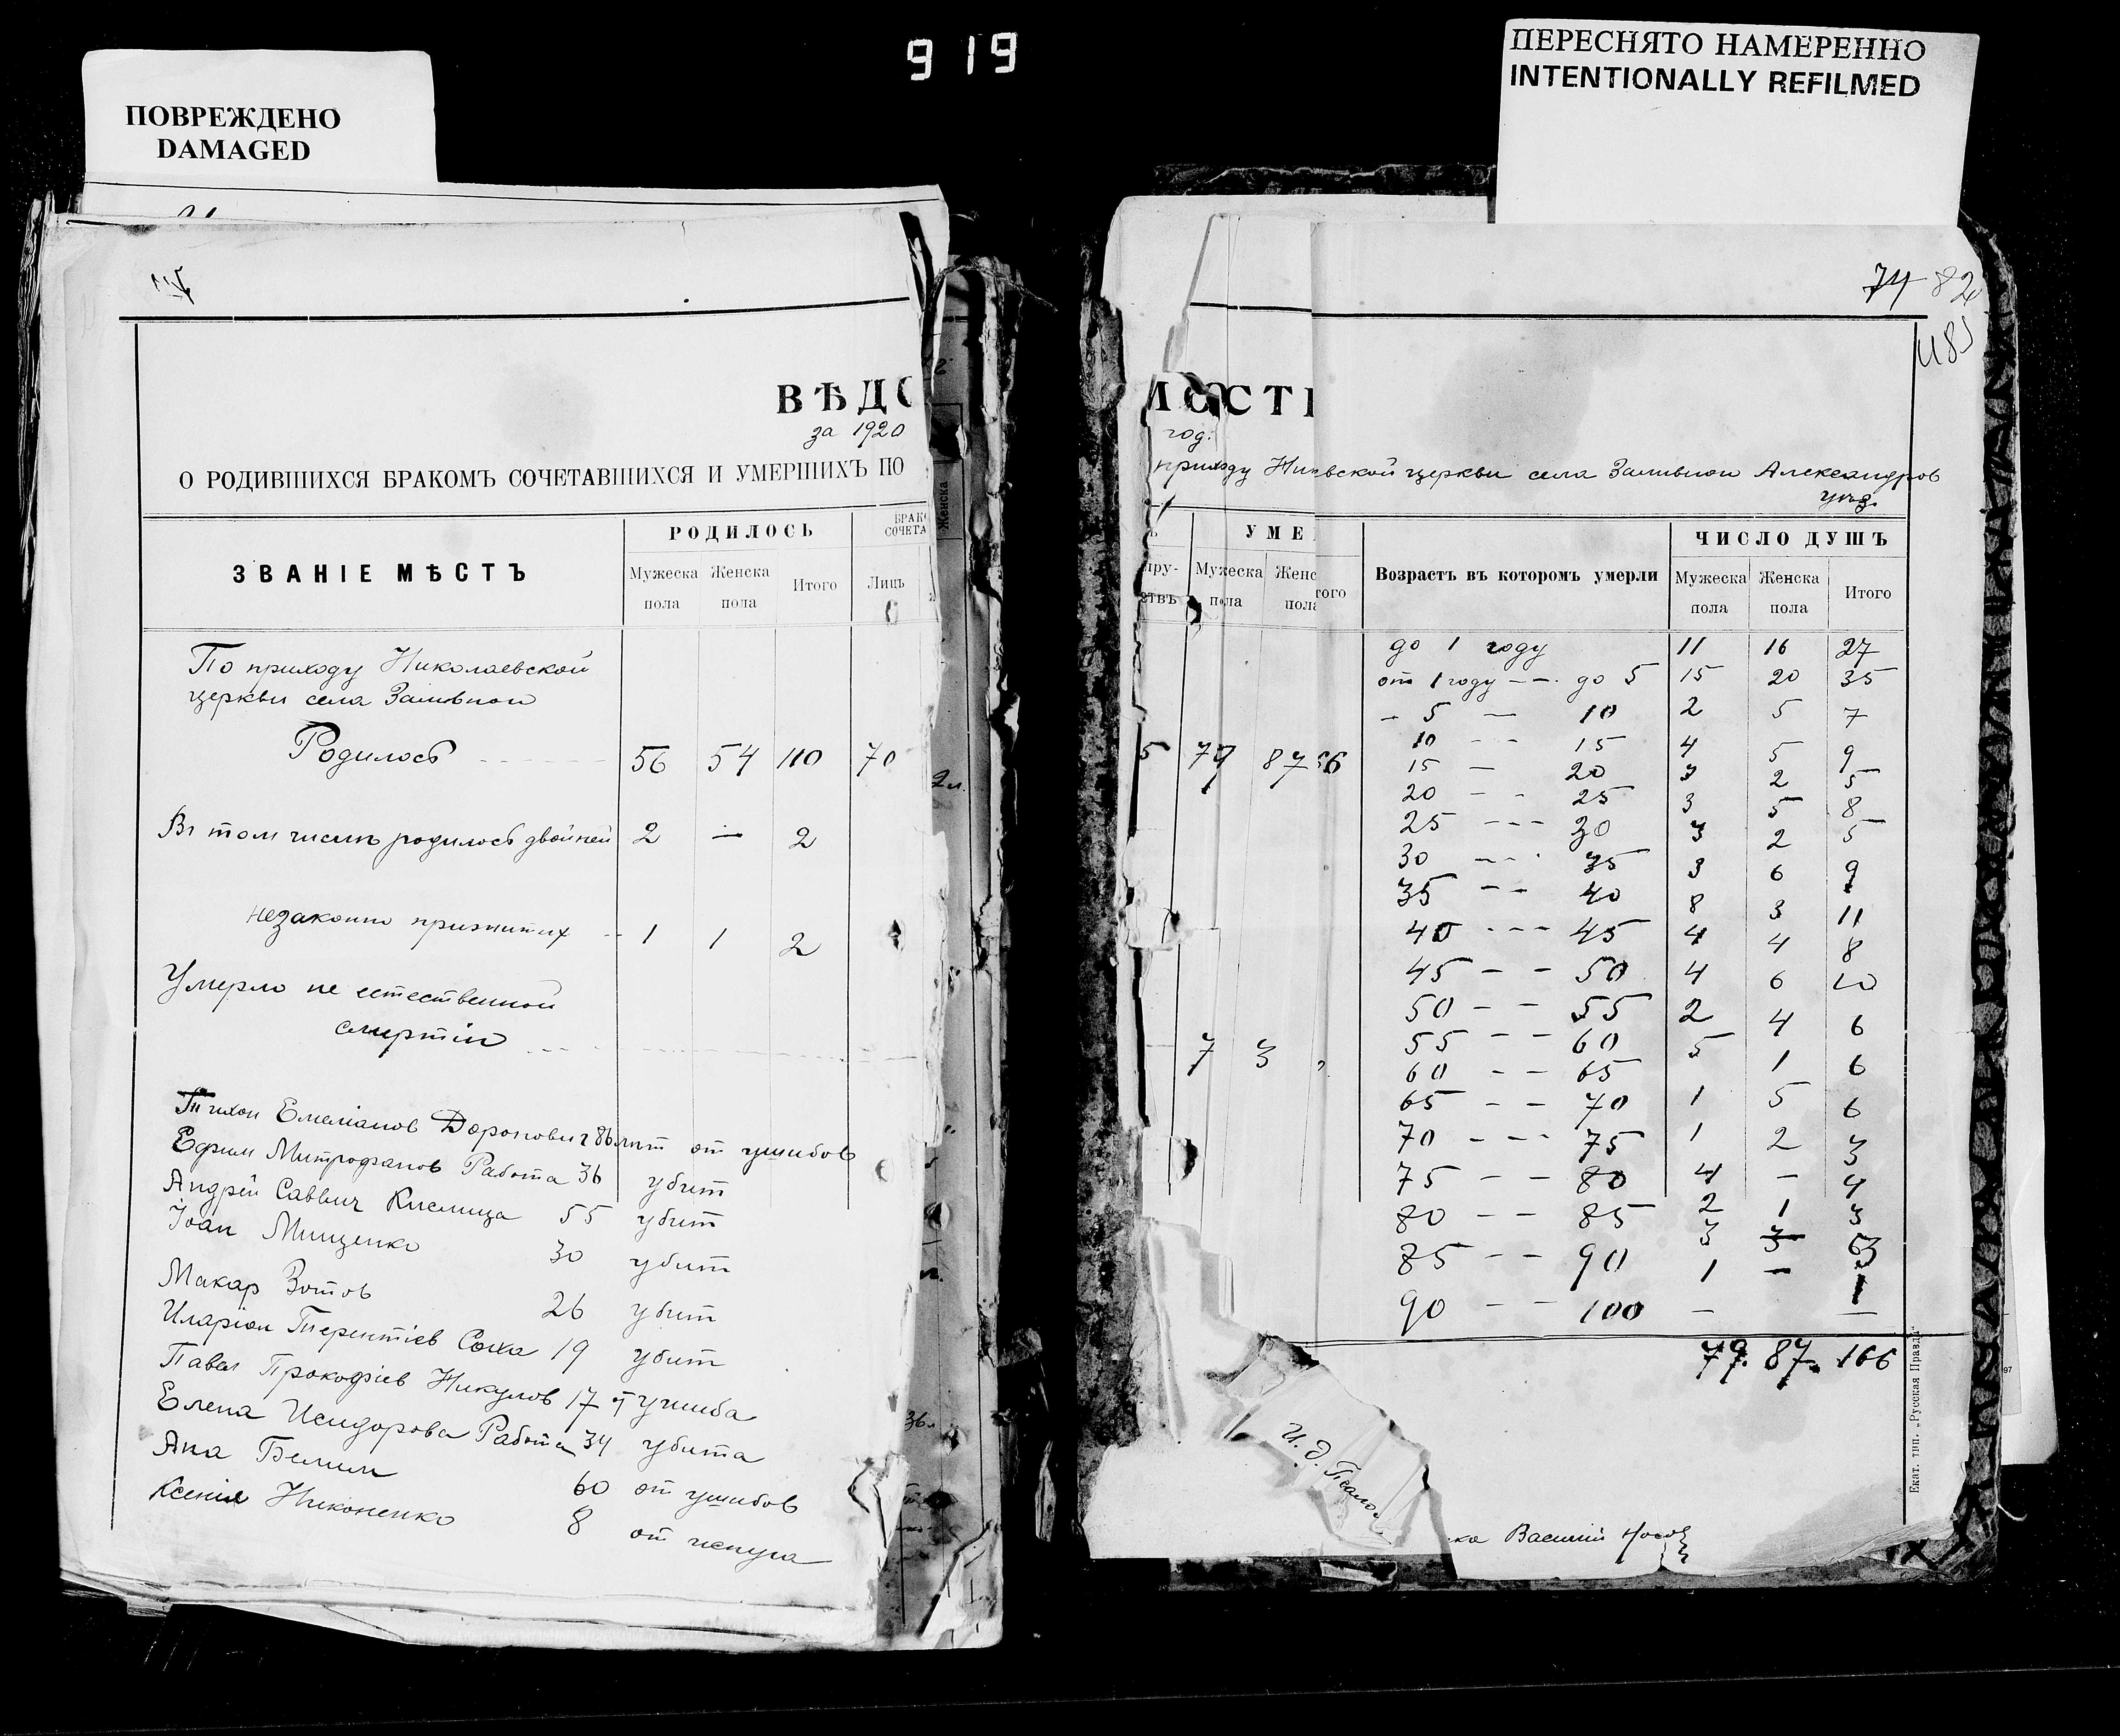 919
ПОВРЕЖДЕНО
DAMAGED
ПЕРЕСНЯТО НАМЕРЕННО
INTENTIONALLY REFILMED
74 82
ВѢДО
за 1920
О РОДИВШИХСЯ БРАКОМЪ СОЧЕТАВШИХСЯ И УМЕРШИХЪ ПО
ЗВАНІЕ МѢСТЪ
РОДИЛОСЬ
БРАК
СОЧЕТА
Мужеска пола
Женска пола
Итого
Лицъ
По приходу Николаевской
церкви села Заливной
Родилось 56 54 110 70
Въ том числѣ родилось двойней 2 — 2
незаконно прижитых 1 1 2
Умерло не естественной
смертію
Тихон Емеліанов Доронович 86 лѣт от ушибов
Ефим Митрофанов Работа 36 убит
Андрей Саввич Кислица 55 убит
Іоан Мищенко 30 убит
Макар Зотов 26 убит
Иларіон Терентіев Соха 19 убит
Павел Прокофіев Никулов 17 от ушиба
Елена Исидорова Работа 34 убита
Ана 60 от ушибов
Ксенія Никоненко 8 от испуга
Женска
МОСТИ
год.
приходу Ник-вской церкви села Заливной Александров
уѣз.
пру-
ствъ
УМЕ
Мужеска пола
Женс пола
того
Возрастъ въ которомъ умерли
ЧИСЛО ДУШЪ
Мужеска пола
Женска пола
Итого
5 79 87 66
7 3
до 1 году 11 16 27
от 1 году — — до 5 15 20 35
— 5 — 10 2 5 7
10 — — 15 4 5 9
15 — 20 3 2 5
20 — — 25 3 5 8
25 — — — 30 3 2 5
30 — — 35 3 6 9
35 — — 40 8 3 11
40 — — — 45 4 4 8
45 — — 50 4 6 10
50 — — 55 2 4 6
55 — — 60 5 1 6
60 — — 65 1 5 6
65 — — 70 1 2 3
70 — — — 75 4 — 4
75 — — 80 2 1 3
80 — — 85 3 — 3
85 — — 90 1 — 1
90 — — 100 — —
79. 87. 166
И. д. Псало
ка Василій Носов
Екат. тип. „Русская Правда"